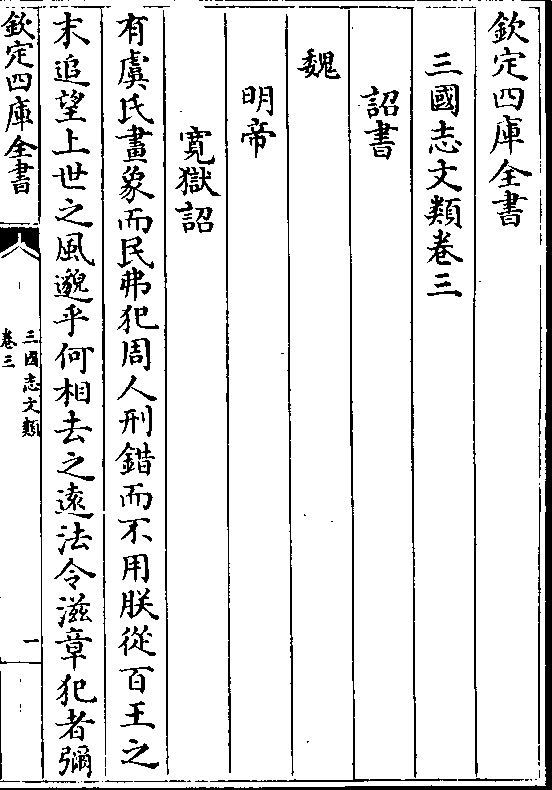 欽定四庫全書
三國志文類卷三
詔書
魏
明帝
寛獄詔
有虞氏畫象而民弗犯周人刑錯而不用朕從百王之
末追望上世之風邈乎何相去之逺法令滋章犯者彌
欽定四庫全書
三國志文類
卷三
一